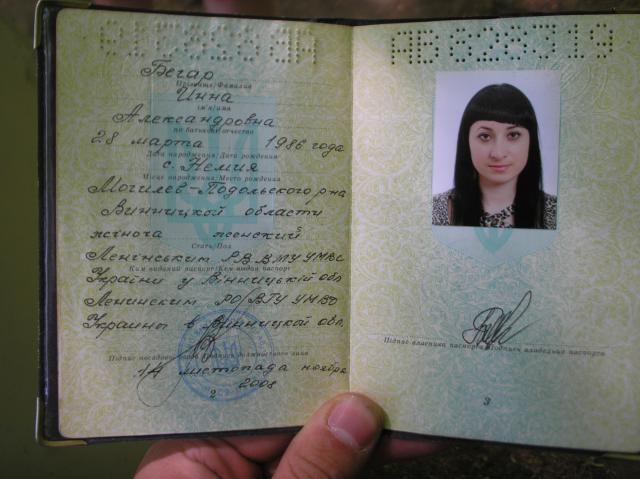 АВ 628319
Бегар
Прізвище/Фамилия
Инна
Ім'я/имя
Александровна
по батькові/отчество
28 марта 1986 года
Дата народження/Дата рождения
с. Немия
Місце народження/Место рождения
Могилев-Подольского р-на
Винницкой области
жіноча женский
Стать/Пол
Ленінським РВ ВМУ УМВС
Ким виданий паспорт/Кем выдан паспорт
України у Вінницькій обл
Ленинским РО ВГУ УМВД
Украины в Винницкой обл.
Підпис посадової особи/Подпись должностного лица
14 листопада ноября
2008
2
Підпис власника паспорта/Подпись владельца паспорта
3